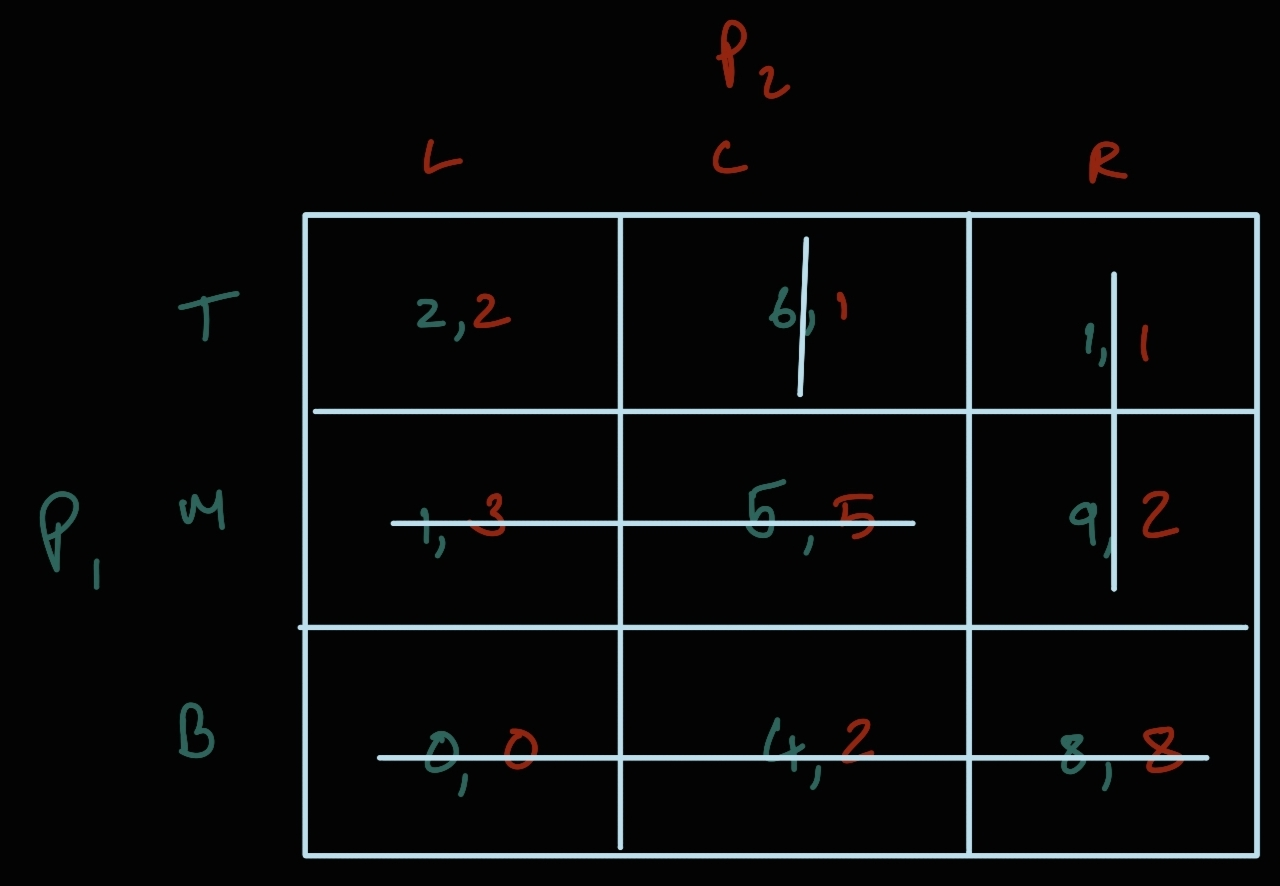 P2
L C R
T 2,2 6,1 1,1
P1 M 1,3 5,5 9,2
B 0,0 4,2 8,8